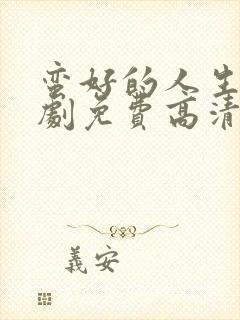 蛮好的人生
劇免費高清
義安